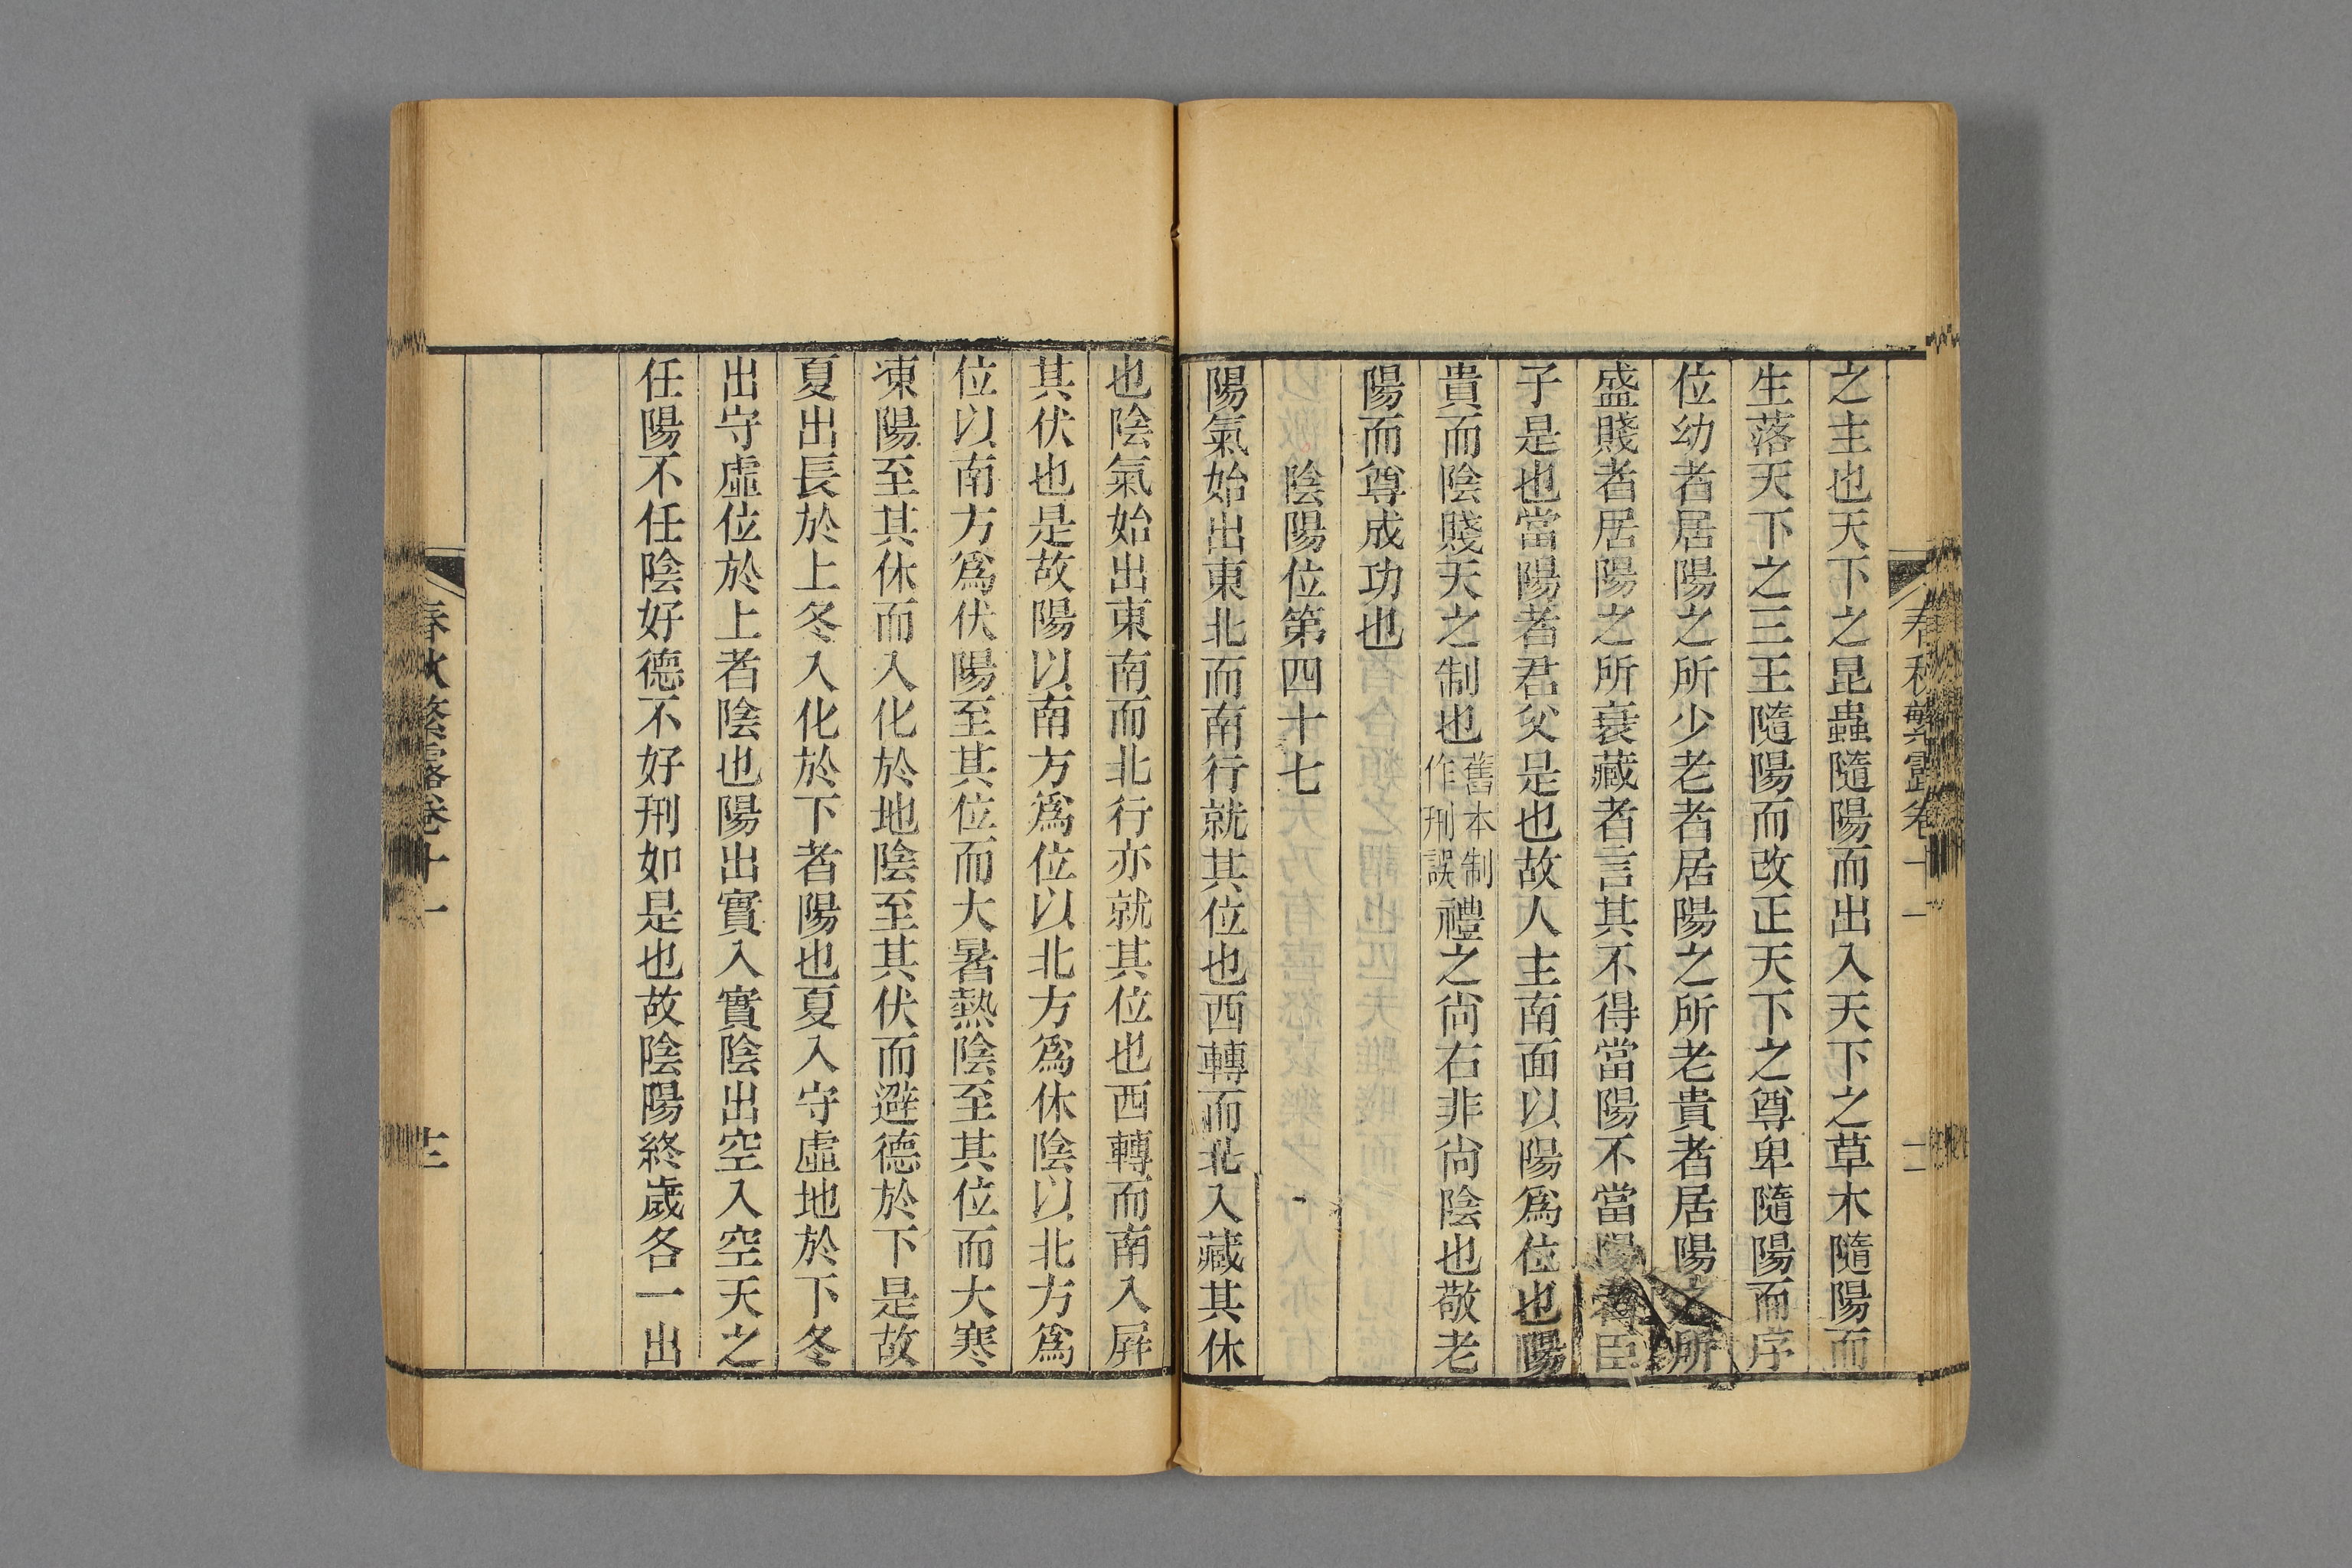 之主也天下之昆蟲隨陽而出入天下之草木隨陽而
生落天下之三王隨陽而改正天下之尊卑隨陽而序
位幼者居陽之所少老者居陽之所老貴者居陽之所
盛賤者居陽之所衰藏者言其不得當陽不當陽者臣
子是也當陽者君父是也故人主南面以陽爲位也陽
貴而陰賤天之制也舊本制作刑誤禮之尙右非尙陰也敬老
陽而尊成功也
陰陽位第四十七
陽氣始出東北而南行就其位也西轉而北入藏其休
也陰氣始出東南而北行亦就其位也西轉而南入屛
其伏也是故陽以南方爲位以北方爲休陰以北方爲
位以南方爲伏陽至其位而大暑熱陰至其位而大寒
凍陽至其休而入化於地陰至其伏而避德於下是故
夏出長於上冬入化於下者陽也夏入守虛地於下冬
出守虛位於上者陰也陽出實入實陰出空入空天之
任陽不任陰好德不好刑如是也故陰陽終歲各一出
春秋繁露卷十一